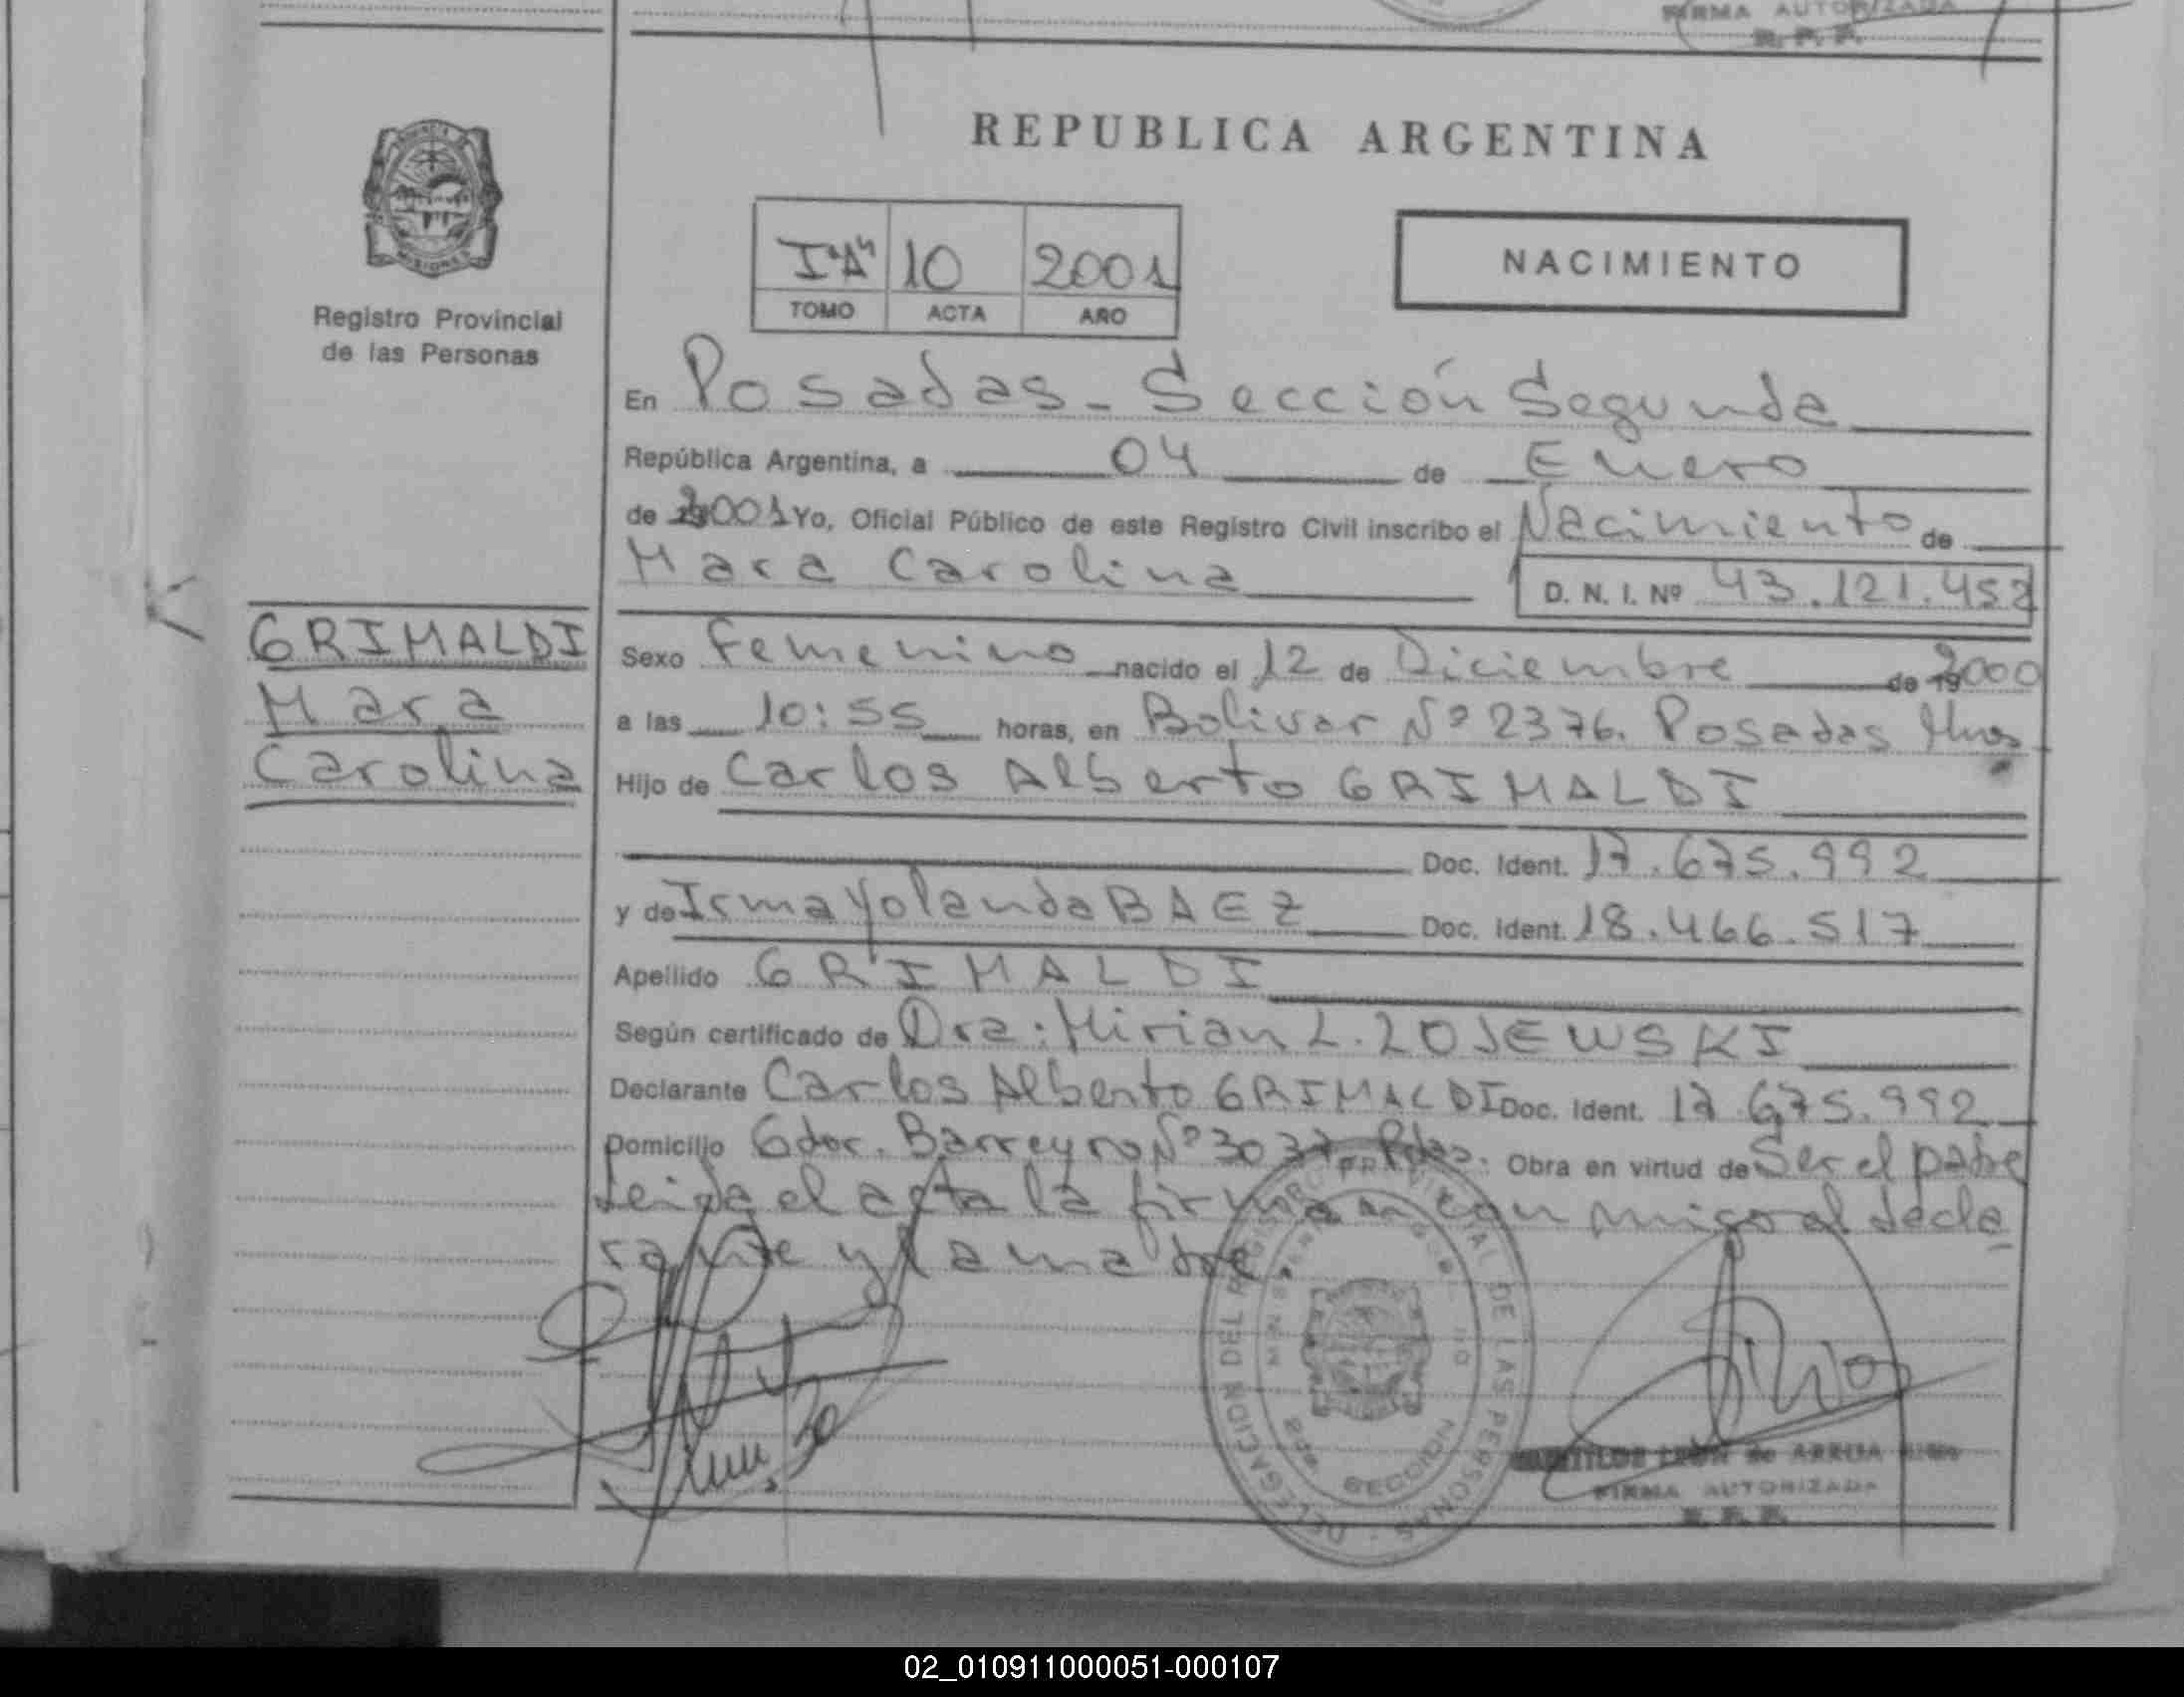 FIRMA AUTORIZADA
R. P. P.
REPUBLICA ARGENTINA
I "A" 10 2001
TOMO ACTA AÑO
NACIMIENTO
MISIONES
Registro Provincial
de las Personas
En Posadas - Sección Segunda
República Argentina, a 04 de Enero
de 2001 Yo, Oficial Público de este Registro Civil inscribo el Nacimiento de
Mara Carolina D. N. I. Nº 43.121.452
GRIMALDI
Mara
Carolina
Sexo Femenino nacido el 12 de Diciembre de 2000
a las 10:55 horas, en Bolivar Nº 2376. Posadas Mnes
Hijo de Carlos Alberto GRIMALDI
Doc. Ident. 17.675.992
y de Irma Yolanda BAEZ Doc. Ident. 18.466.517
Apellido GRIMALDI
Según certificado de Dra: Mirian L. ZOJEWSKI
Declarante Carlos Alberto GRIMALDI Doc. Ident. 17.675.992
Domicilio Gdor. Barreyro Nº 3037 Pdas. Obra en virtud de Ser el padre
Leida el acta la firman con migo el decla
rante y la madre.
DELEGACION DEL REGISTRO PROVINCIAL DE LAS PERSONAS
2da SECCION
LEON de ARRUA
FIRMA AUTORIZADA
R. P. P.
02_010911000051-000107